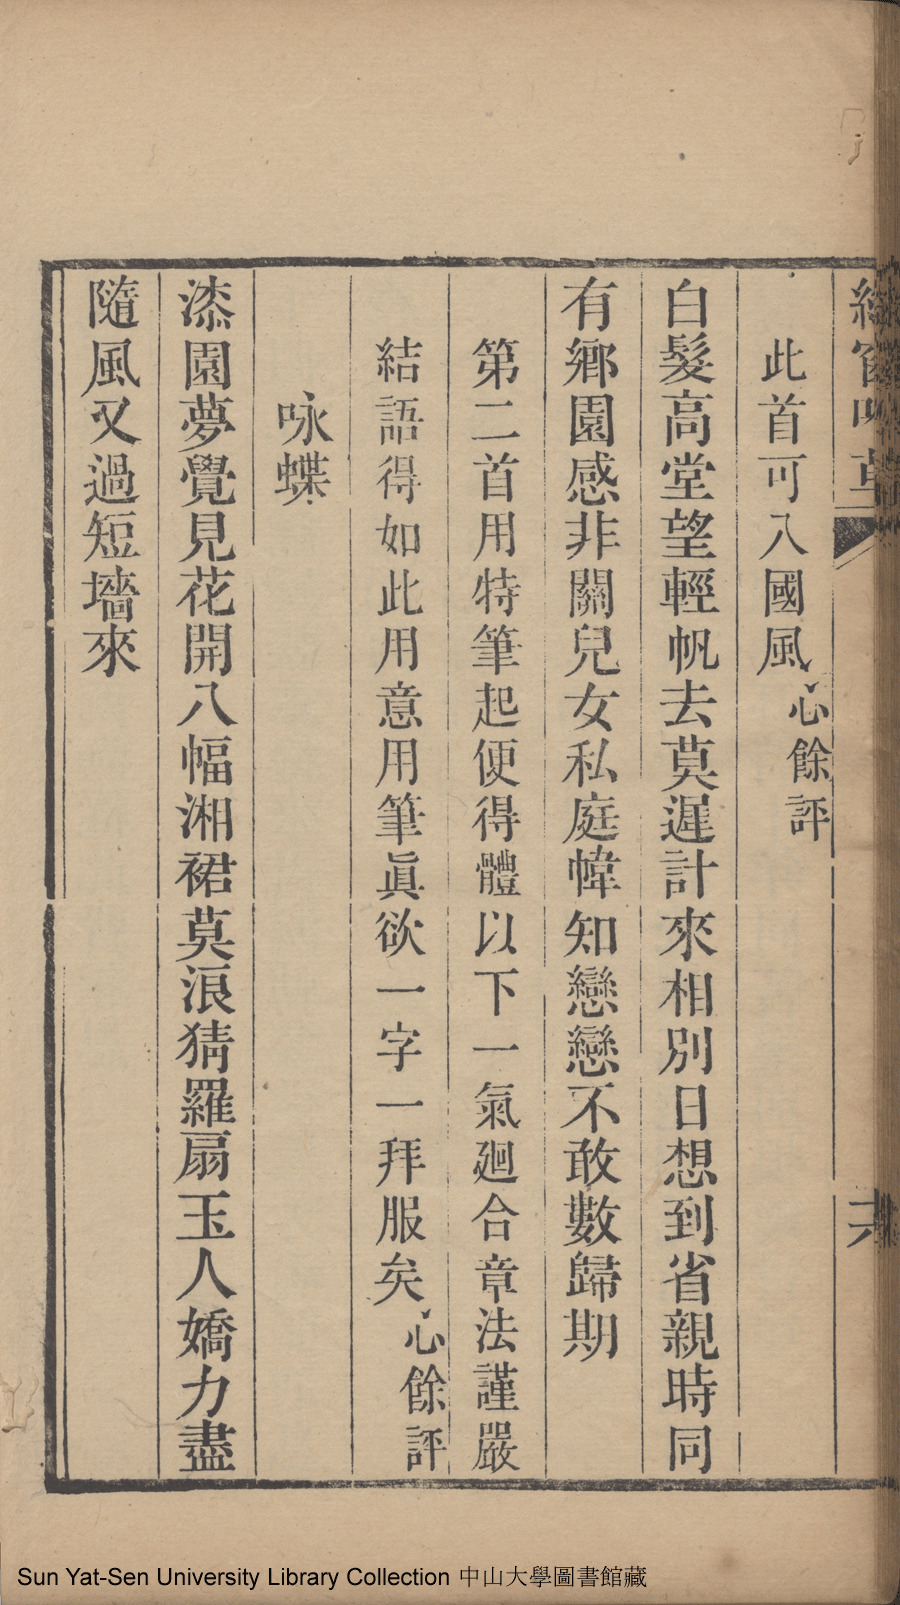 此首可入國風心餘評
白髮高堂望輕帆去莫遲計來相別日想到省親時同
有鄉園感非關兒女私庭幃知戀戀不敢數歸期
第二首用特筆起便得體以下一氣廻合章法謹嚴
結語得如此用意用筆眞欲一字一拜服矣心餘評
咏蝶
漆園夢覺見花開八幅湘裙莫浪猜羅扇玉人嬌力盡
隨風又過短墻來
Sun Yat-Sen University Library Collection 中山大學圖書館藏